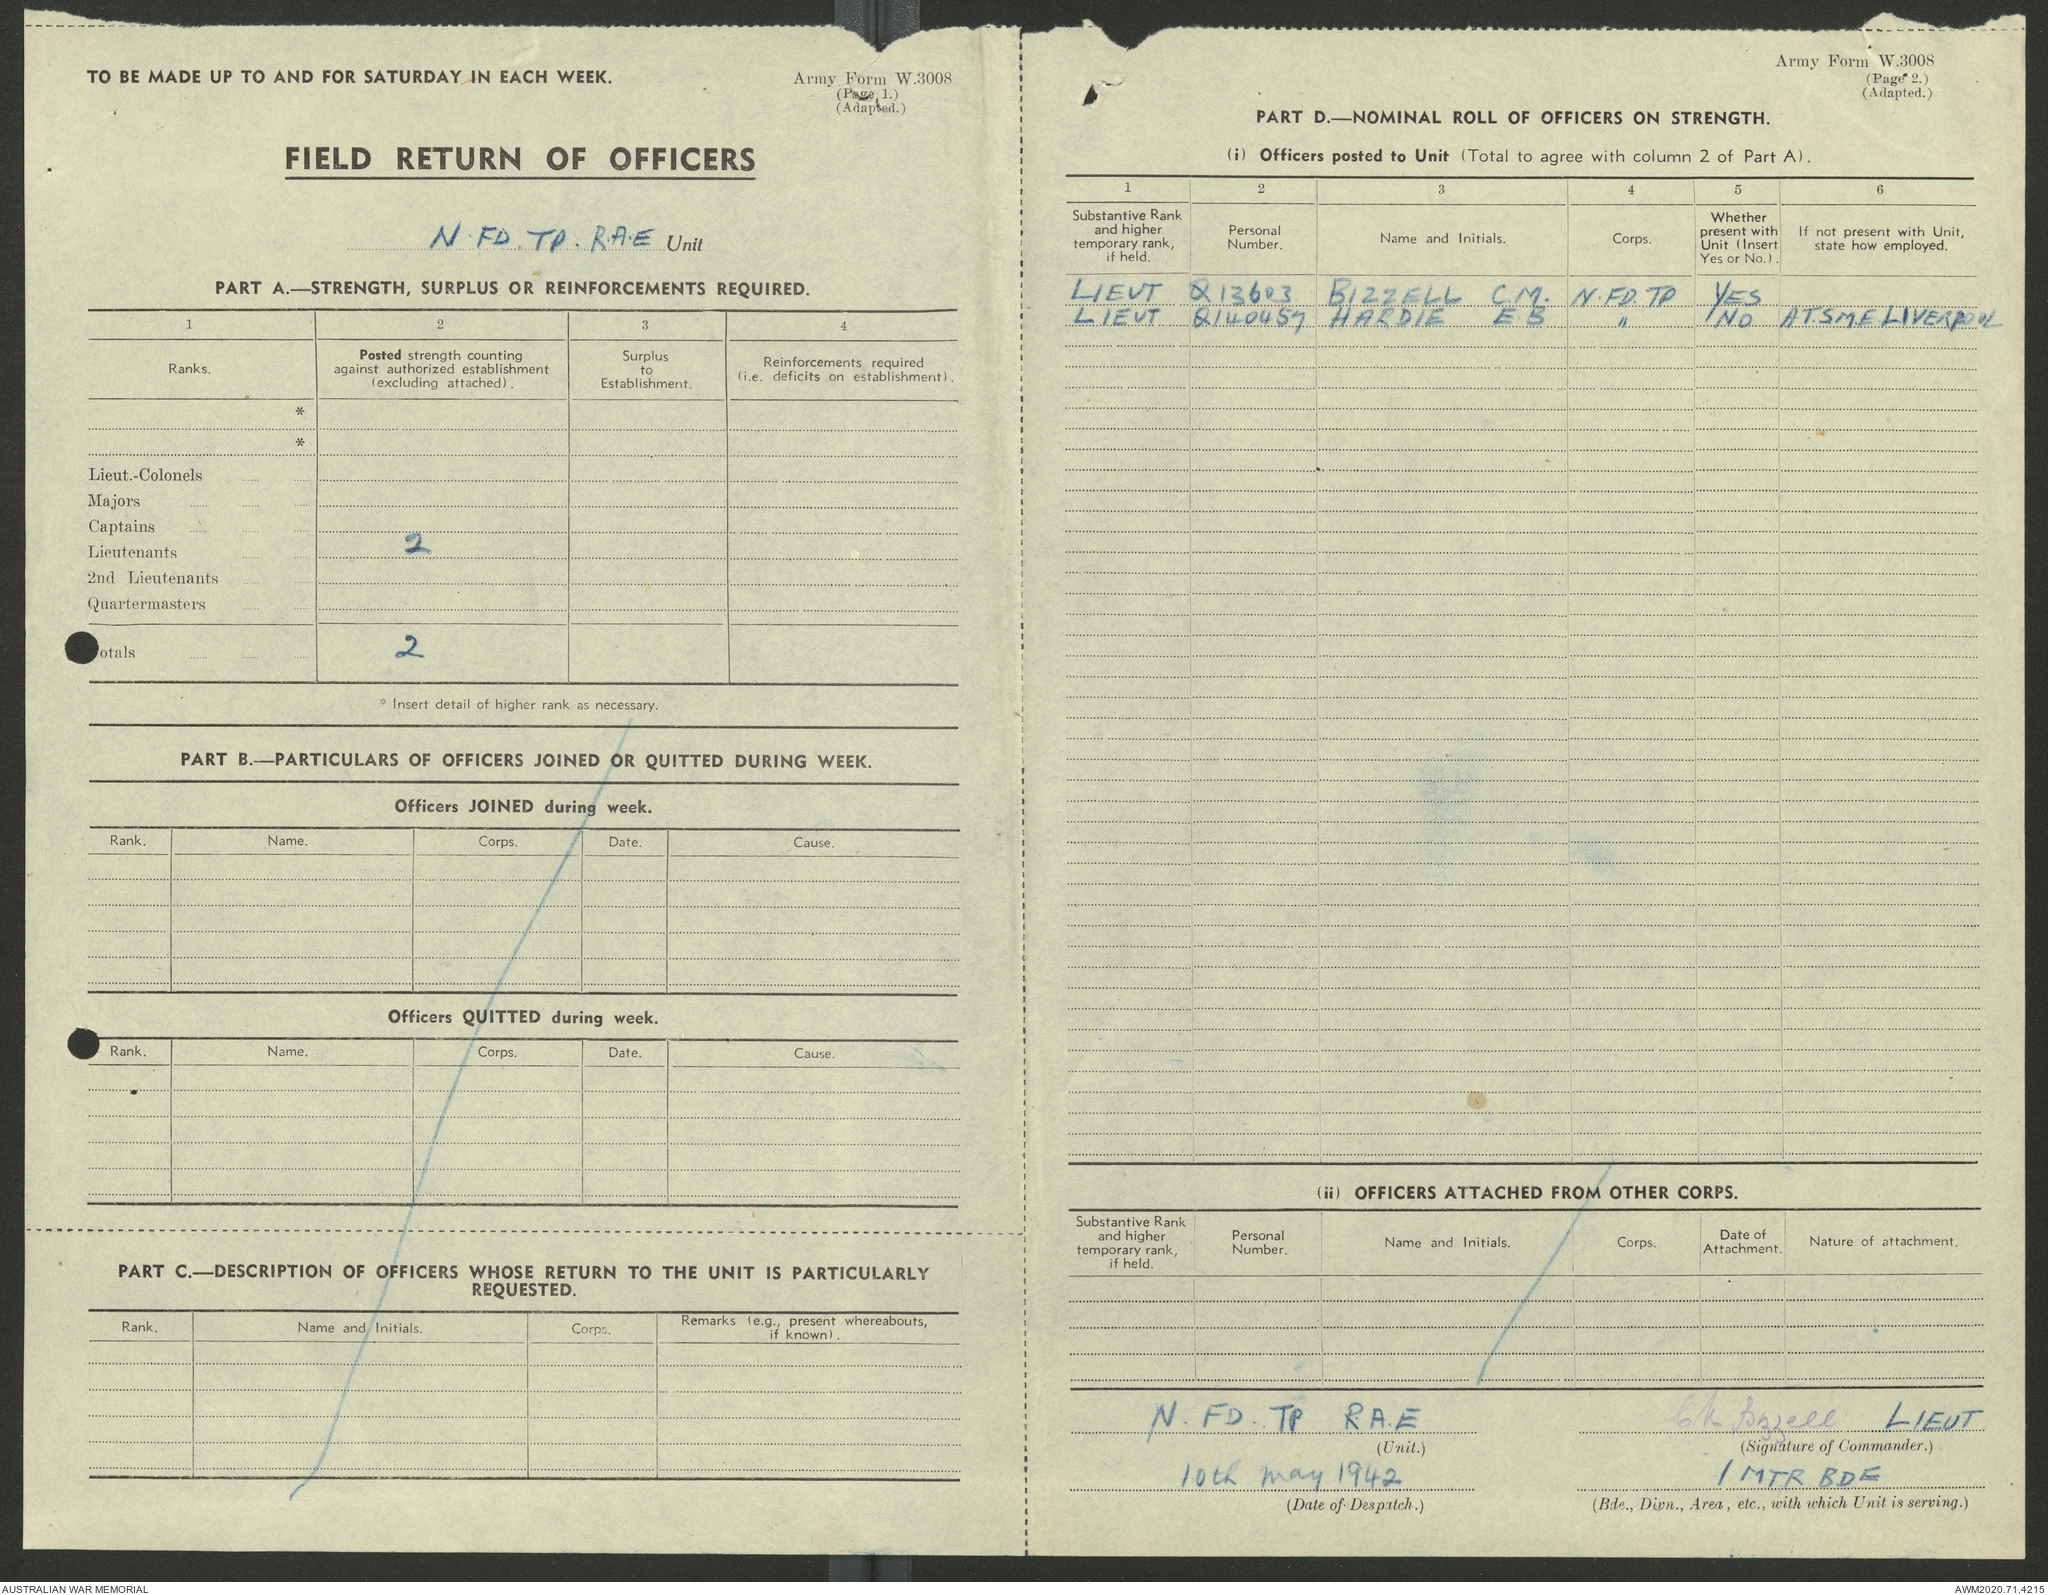 TO BE MADE UP TO AND FOR SATURDAY IN EACH WEEK.
Army Form W.3008
(Page 1.)
(Adapted.)
FIELD RETURN OF OFFICERS
N. FD. TP. R.A.E Unit
PART A.—STRENGTH, SURPLUS OR REINFORCEMENTS REQUIRED.
1 2 3 4
Ranks. Posted strength counting against authorized establishment (excluding attached). Surplus to Establishment. Reinforcements required (i.e. deficits on establishment).
*
*
Lieut.-Colonels
Majors
Captains
Lieutenants 2
2nd Lieutenants
Quartermasters
otals 2
* Insert detail of higher rank as necessary.
PART B.—PARTICULARS OF OFFICERS JOINED OR QUITTED DURING WEEK.
Officers JOINED during week.
Rank. Name. Corps. Date. Cause.
Officers QUITTED during week.
Rank. Name. Corps. Date. Cause.
PART C.—DESCRIPTION OF OFFICERS WHOSE RETURN TO THE UNIT IS PARTICULARLY
REQUESTED.
Rank. Name and Initials. Corps. Remarks (e.g., present whereabouts, if known).
Army Form W.3008
(Page 2.)
(Adapted.)
PART D.—NOMINAL ROLL OF OFFICERS ON STRENGTH.
(i) Officers posted to Unit (Total to agree with column 2 of Part A).
1 2 3 4 5 6
Substantive Rank and higher temporary rank, if held. Personal Number. Name and Initials. Corps. Whether present with Unit (Insert Yes or No.). If not present with Unit, state how employed.
LIEUT Q13603 BIZZELL C.M. N. FD. TP YES
LIEUT Q140457 HARDIE E.B " NO AT S.M.E. LIVERPOOL
(ii) OFFICERS ATTACHED FROM OTHER CORPS.
Substantive Rank and higher temporary rank, if held. Personal Number. Name and Initials. Corps. Date of Attachment. Nature of attachment.
N. FD. TP R.A.E
(Unit.)
10th May 1942
(Date of Despatch.)
CM Bizzell LIEUT
(Signature of Commander.)
1 MTR BDE
(Bde., Divn., Area, etc., with which Unit is serving.)
AUSTRALIAN WAR MEMORIAL
AWM2020.71.4215